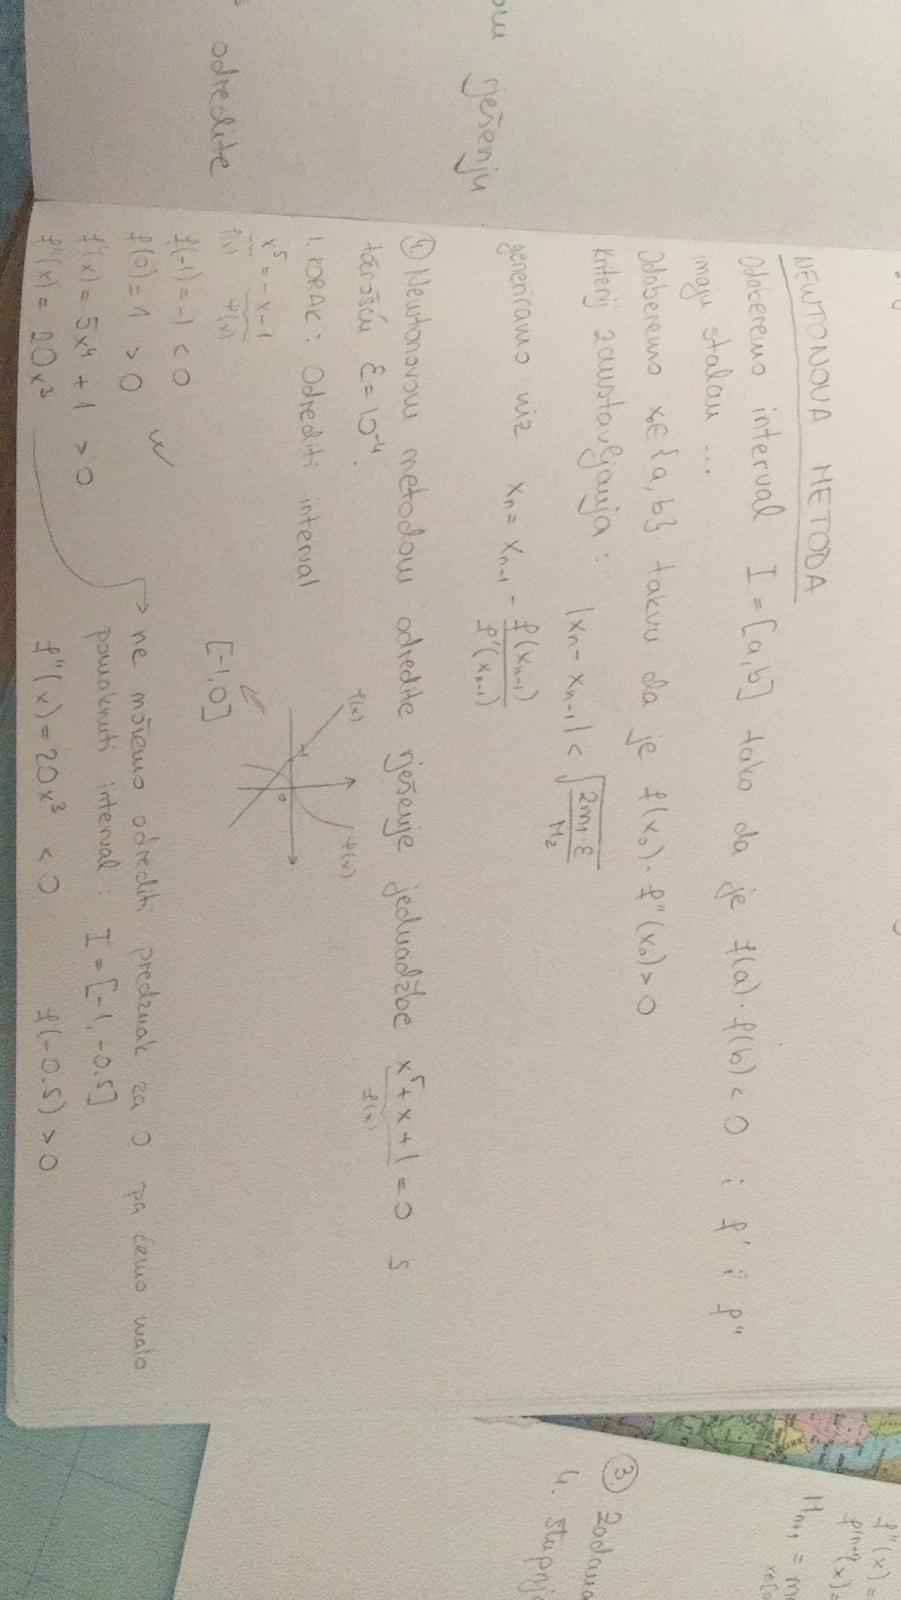 NEWTONOVA METODA
Odaberemo interval I = [a,b] tako da je f(a)·f(b) < 0 i f' i f"
imaju stalan ...
Odaberemo x₀∈{a,b} takvu da je f(x₀)·f"(x₀) > 0
Kriterij zaustavljanja: |xₙ - xₙ₋₁| < √(2m₁·ε / M₂)
generiramo niz xₙ = xₙ₋₁ - f(xₙ₋₁) / f'(xₙ₋₁)
④ Newtonovom metodom odredite rješenje jednadžbe x⁵+x+1 = 0 s
f(x)
točnošću ε = 10⁻⁴.
1. KORAK: Odrediti interval
x⁵ = -x-1
φ(x)
-1
0
[-1,0]
f(-1) = -1 < 0
f(0) = 1 > 0
f'(x) = 5x⁴ + 1 > 0
f"(x) = 20x³
ne možemo odrediti predznak za 0 pa ćemo malo
pomaknuti interval: I = [-1, -0.5]
f"(x) = 20x³ < 0 f(-0.5) > 0
rješenju
odredite
f"(x) =
(x) =
Mₙ₊₁ =
③ Zadana
4. stupnja